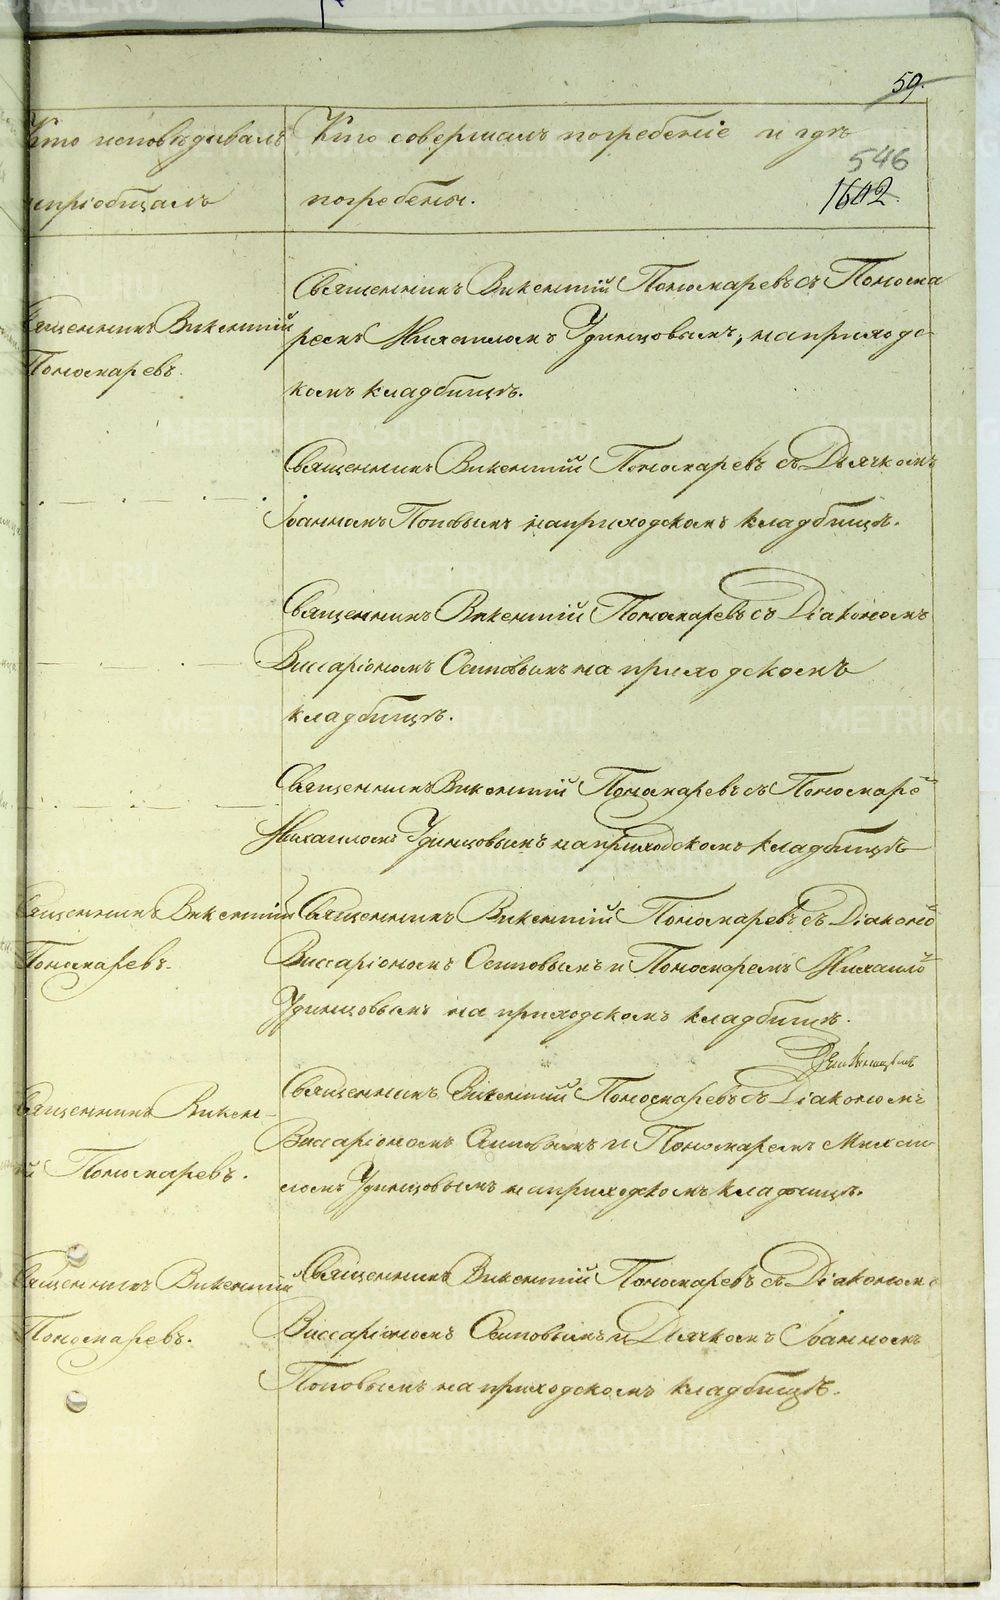 59.
Кто исповѣдывалъ
и пріобщалъ
Кто совершалъ погребеніе и гдѣ
546
погребены.
1602
Священникъ Викентій
Пономаревъ.
Священникъ Викентій Пономаревъ съ Понома
ремъ Михаиломъ Удинцовымъ, на приходс-
комъ кладбищѣ.
Священникъ Викентій Пономаревъ съ Дьячкомъ
Іоанномъ Поповымъ на приходскомъ кладбищѣ.
Священникъ Викентій Пономаревъ съ Діакономъ
Виссаріономъ Осиповымъ на приходскомъ
кладбищѣ.
Священникъ Викентій Пономаревъ съ Пономаре
Михаиломъ Удинцовымъ на приходскомъ кладбищѣ
Священникъ Викентій
Пономаревъ.
Священникъ Викентій Пономаревъ съ Діаконо
Виссаріономъ Осиповымъ и Пономаремъ Михаило
Удинцовымъ на приходскомъ кладбищѣ.
Священникъ Викен-
ій Пономаревъ.
Священникъ Викентій Пономаревъ съ Діакономъ
Виссаріономъ Осиповымъ и Пономаремъ Михаи
ломъ Удинцовымъ на приходскомъ кладбищѣ.
Священникъ Викентій
Пономаревъ.
Священникъ Викентій Пономаревъ съ Діакономъ
Виссаріономъ Осиповымъ и Дьячкомъ Іоанномъ
Поповымъ на приходскомъ кладбищѣ.
METRIKI.GASO-URAL.RU